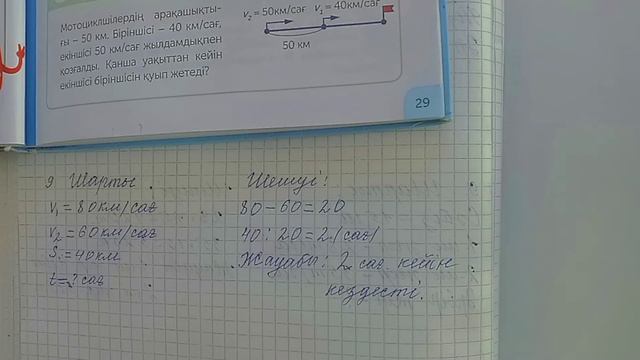 Мотоциклшілердің арақашықты-
ғы – 50 км. Біріншісі – 40 км/сағ,
екіншісі 50 км/сағ жылдамдықпен
қозғалды. Қанша уақыттан кейін
екіншісі біріншісін қуып жетеді?
v₂ = 50км/сағ v₁ = 40км/сағ
50 км
29
9 Шарты
v₁ = 80 км/сағ
v₂ = 60 км/сағ
S = 40 км
t = ? сағ
Шешуі:
80 – 60 = 20
40 : 20 = 2 /сағ/
Жауабы: 2 сағ кейін
кездесті.